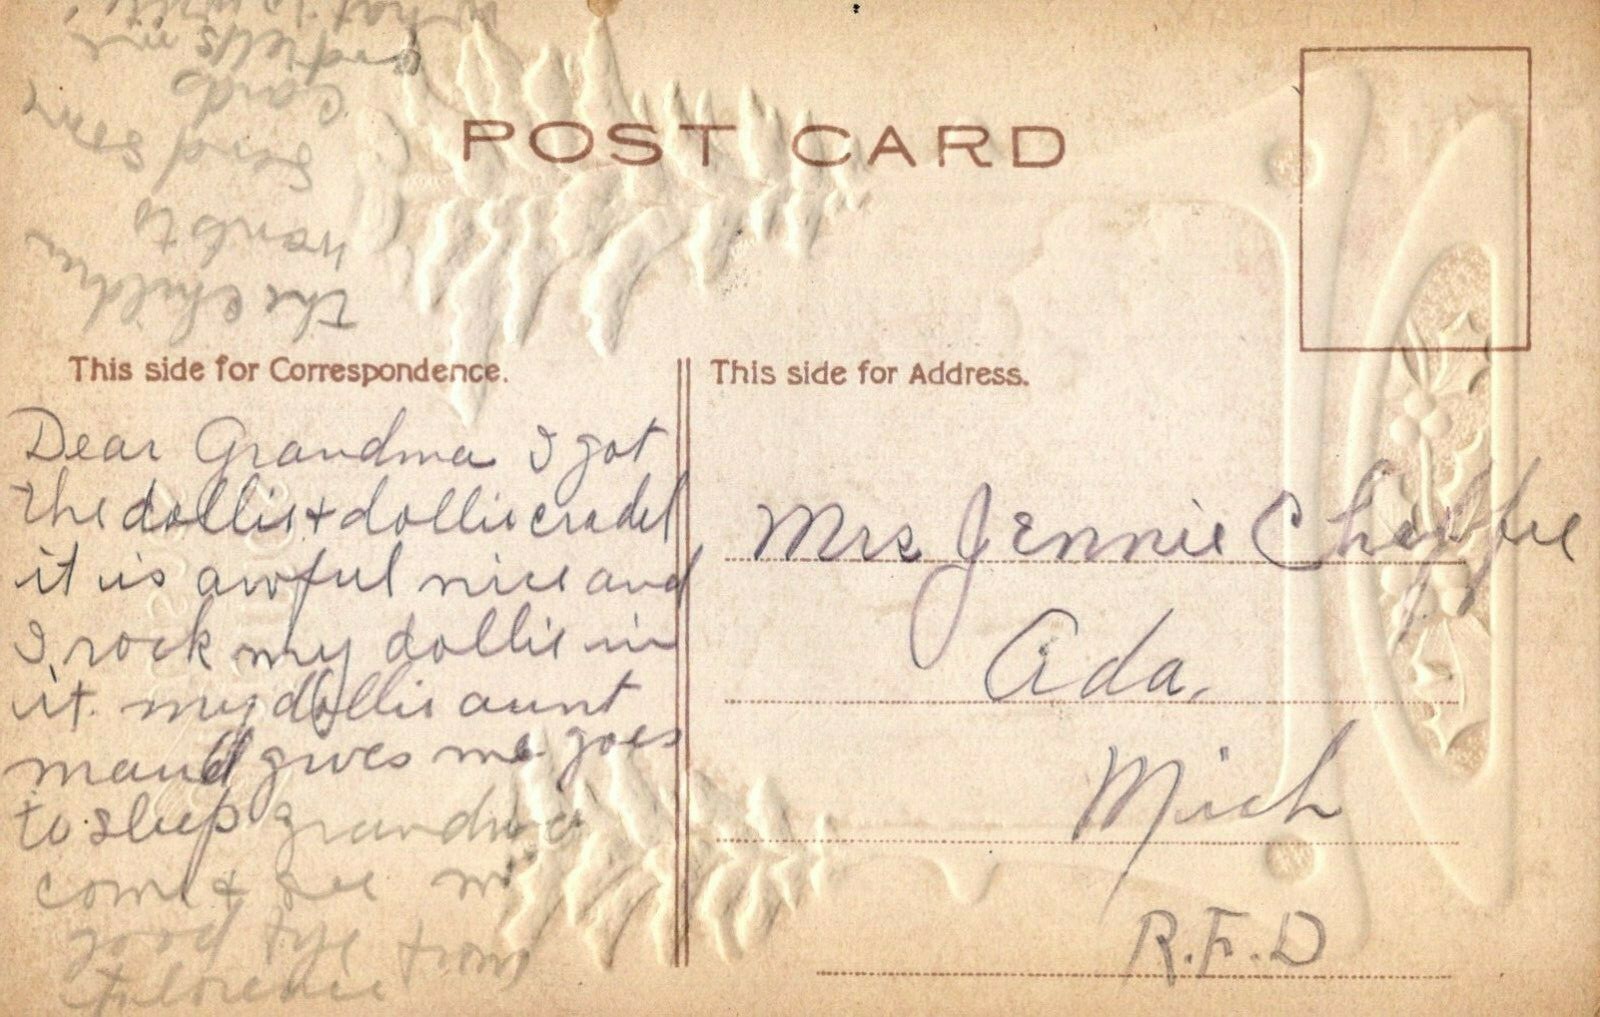 POST CARD
This side for Correspondence.
Dear Grandma I got
the dollie + dollie cradel
it is awful nice and
I rock my dollie in
it. my dollie aunt
maud gives me goes
to sleep grandma
come + see me
good bye from
Florence
the children
wants to
send some
cards
and tells me
what to write
This side for Address.
Mrs Jennie Chaffee
Ada,
Mich
R.F.D